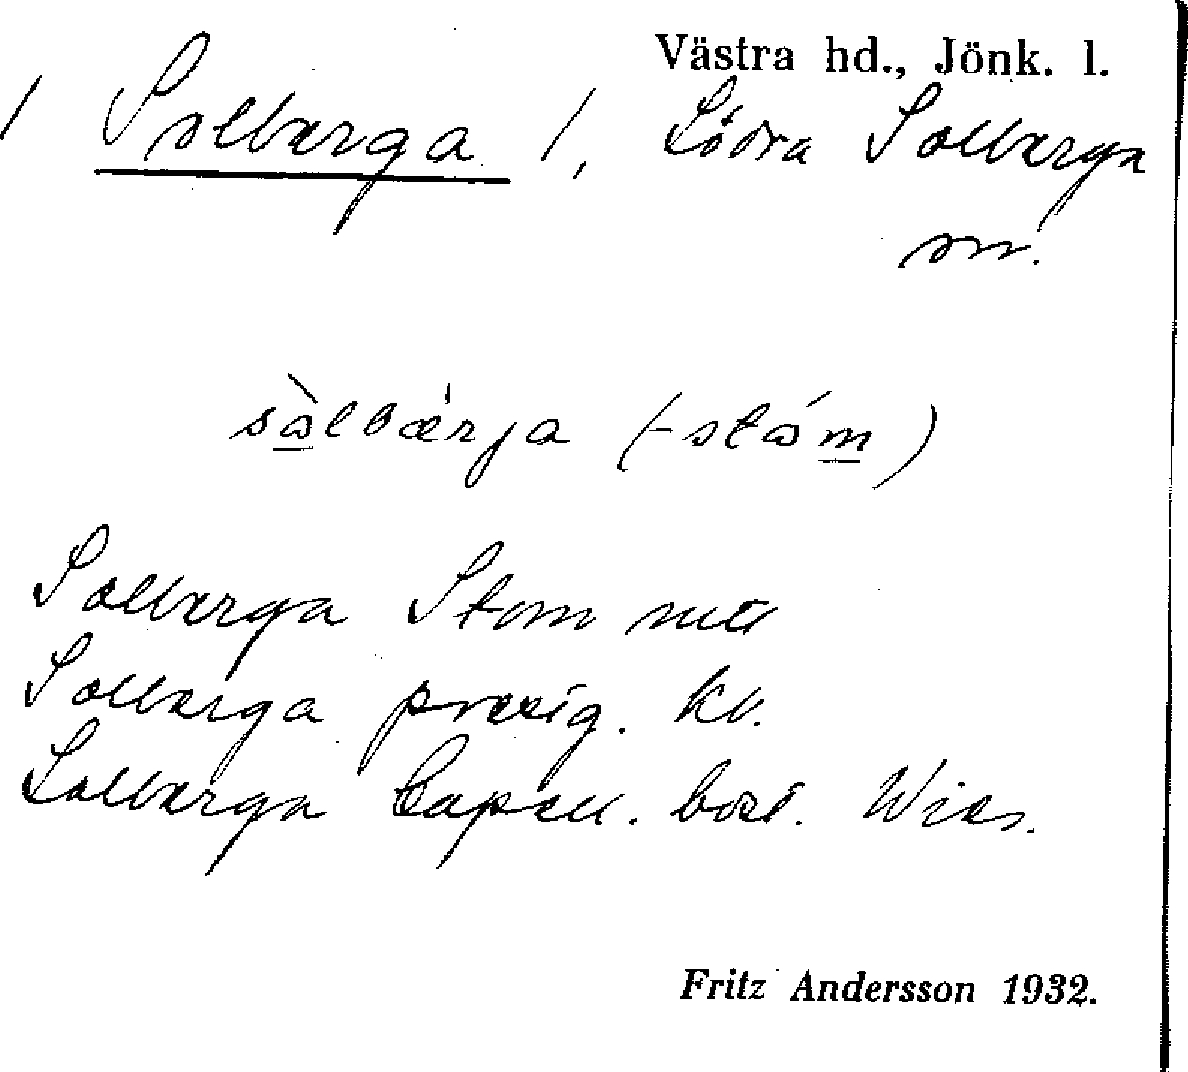 Västra hd., Jönk. l.
/ Solberga /, Södra Solberga
sn.
sålbærja (-ståm)
Solberga Stom mtl
Solberga prestg. kv.
Solberga Capell. bost. Wies.
Fritz Andersson 1932.